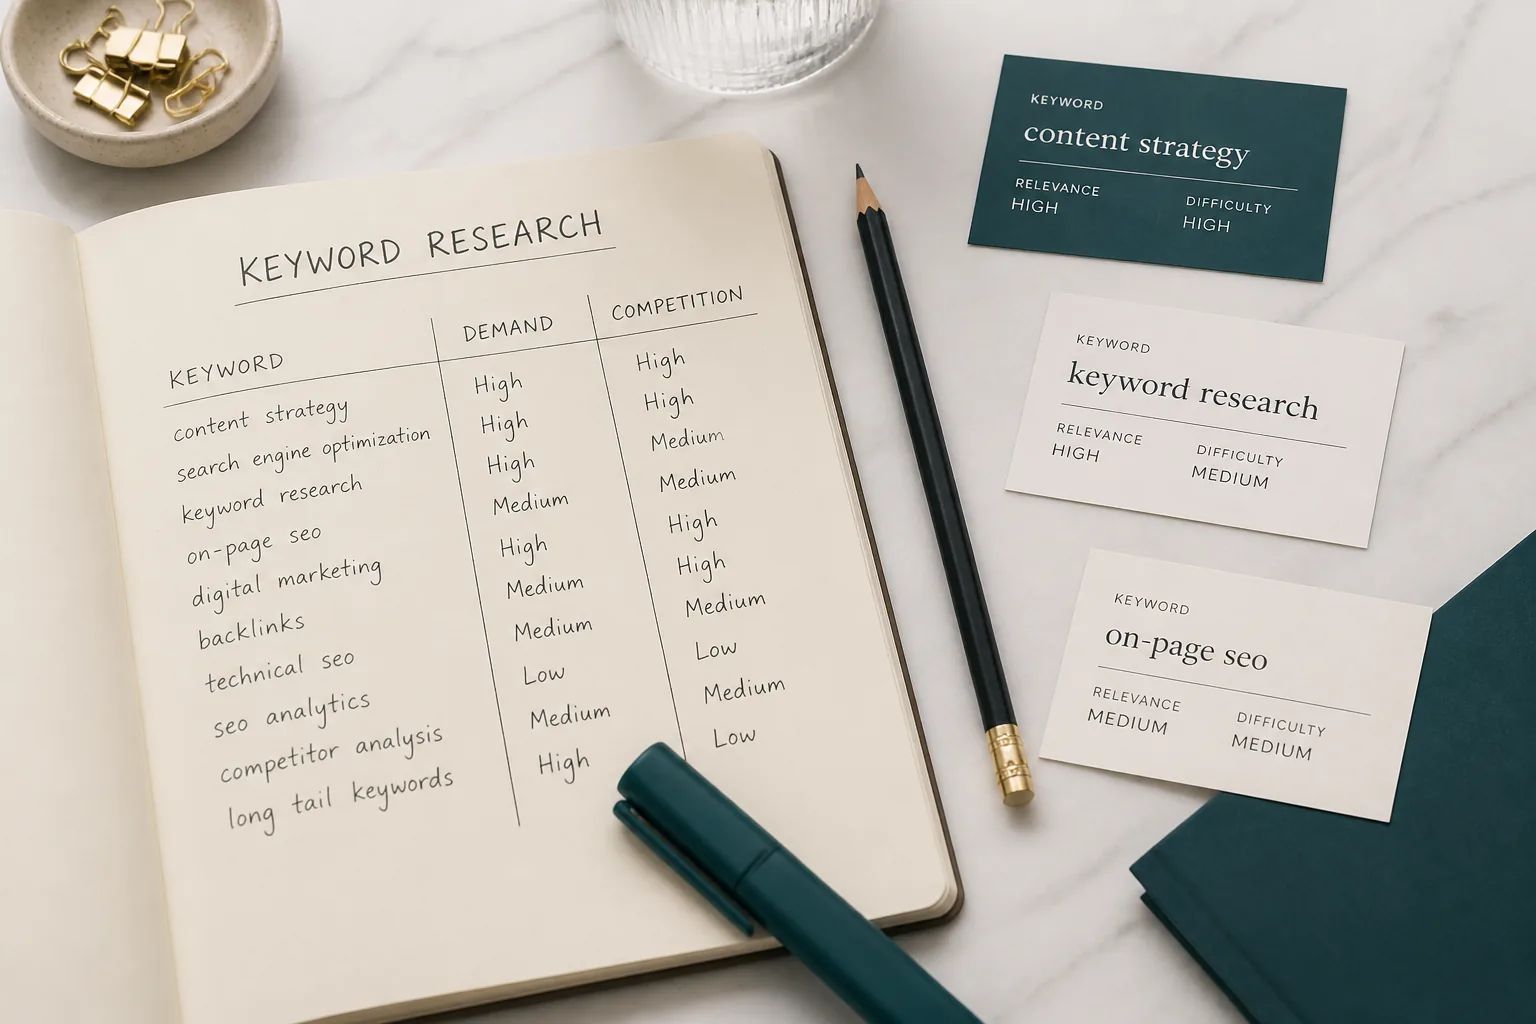 KEYWORD RESEARCH
KEYWORD DEMAND COMPETITION
content strategy High High
search engine optimization High High
keyword research High Medium
on-page seo Medium Medium
digital marketing High High
backlinks Medium High
technical seo Medium Medium
seo analytics Low Low
competitor analysis Medium Medium
long tail keywords High Low
KEYWORD
content strategy
RELEVANCE DIFFICULTY
HIGH HIGH
KEYWORD
keyword research
RELEVANCE DIFFICULTY
HIGH MEDIUM
KEYWORD
on-page seo
RELEVANCE DIFFICULTY
MEDIUM MEDIUM